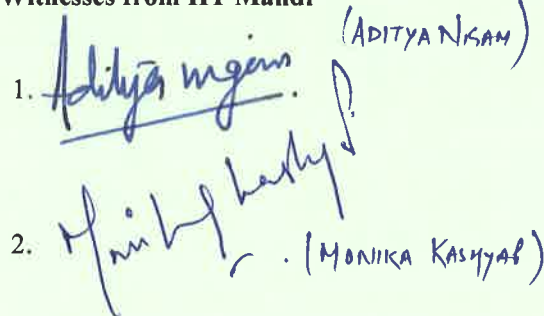 Witnesses from IIT Mandi
(ADITYA NIGAM)
1. Aditya nigam
2.
(MONIKA KASHYAP)